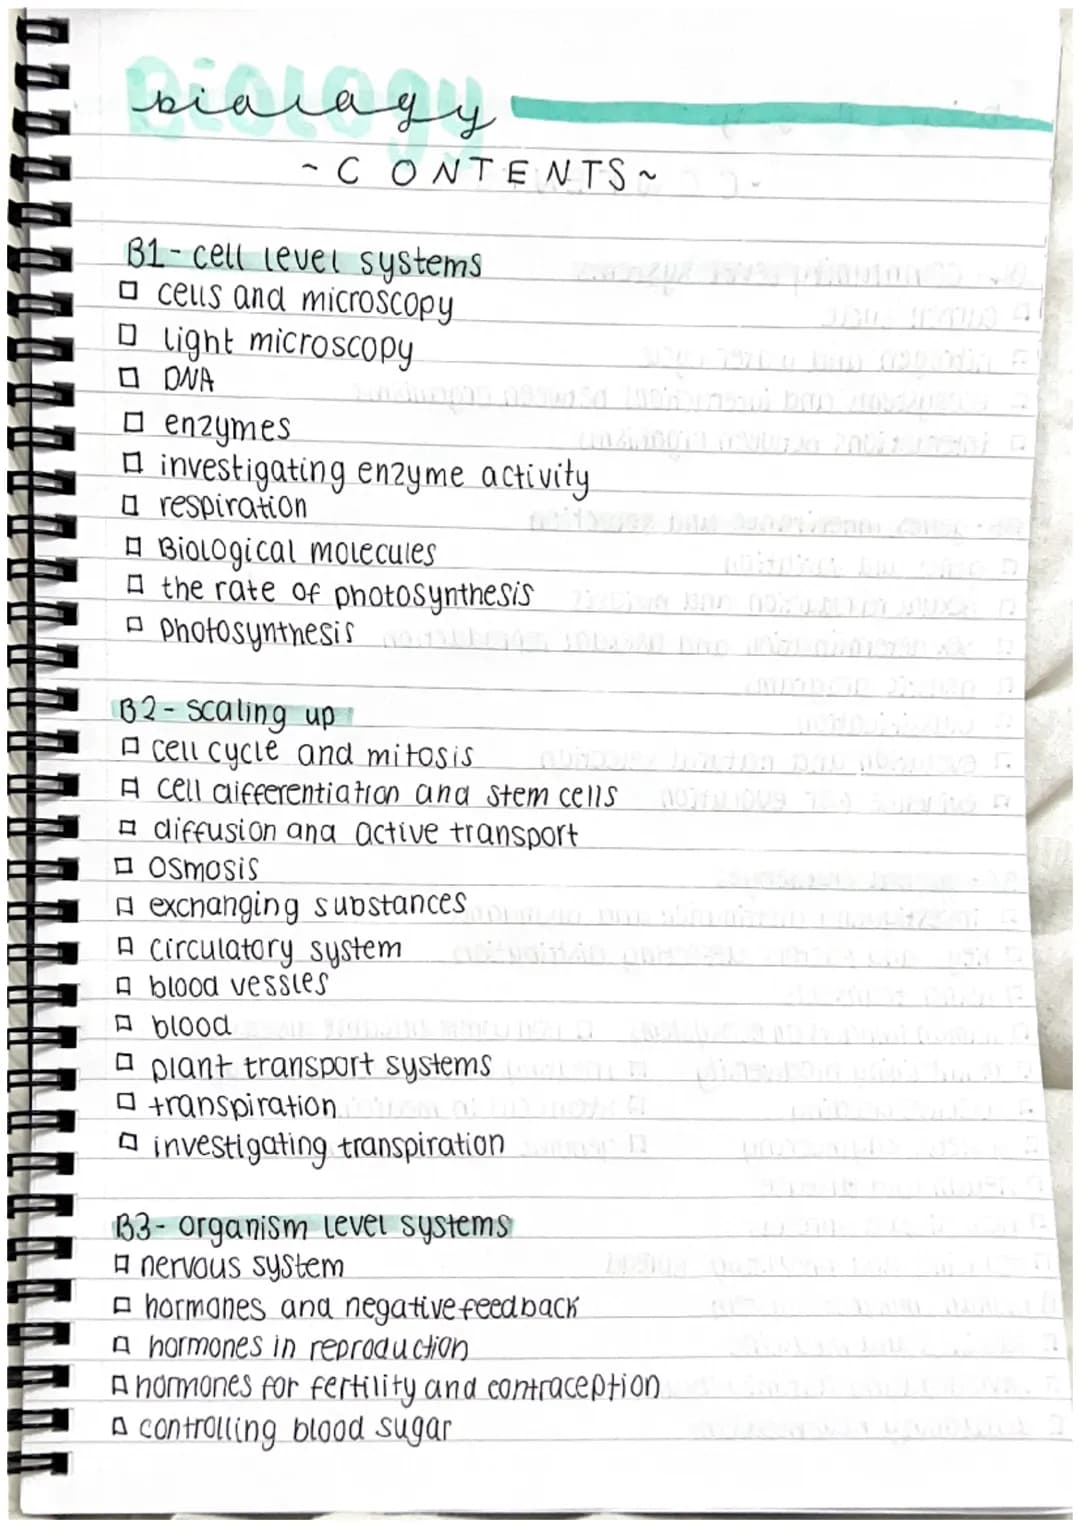 Biology
biology
~CONTENTS~
B1- cell level systems
□ cells and microscopy
□ light microscopy
□ DNA
□ enzymes
□ investigating enzyme activity
□ respiration
□ Biological molecules
□ the rate of photosynthesis
□ Photosynthesis
B2- scaling up
□ cell cycle and mitosis
□ cell differentiation and stem cells
□ diffusion and active transport
□ osmosis
□ exchanging substances
□ circulatory system
□ blood vessles
□ blood
□ plant transport systems
□ transpiration
□ investigating transpiration
B3- organism level systems
□ nervous system
□ hormones and negative feedback
□ hormones in reproduction
□ hormones for fertility and contraception
□ controlling blood sugar